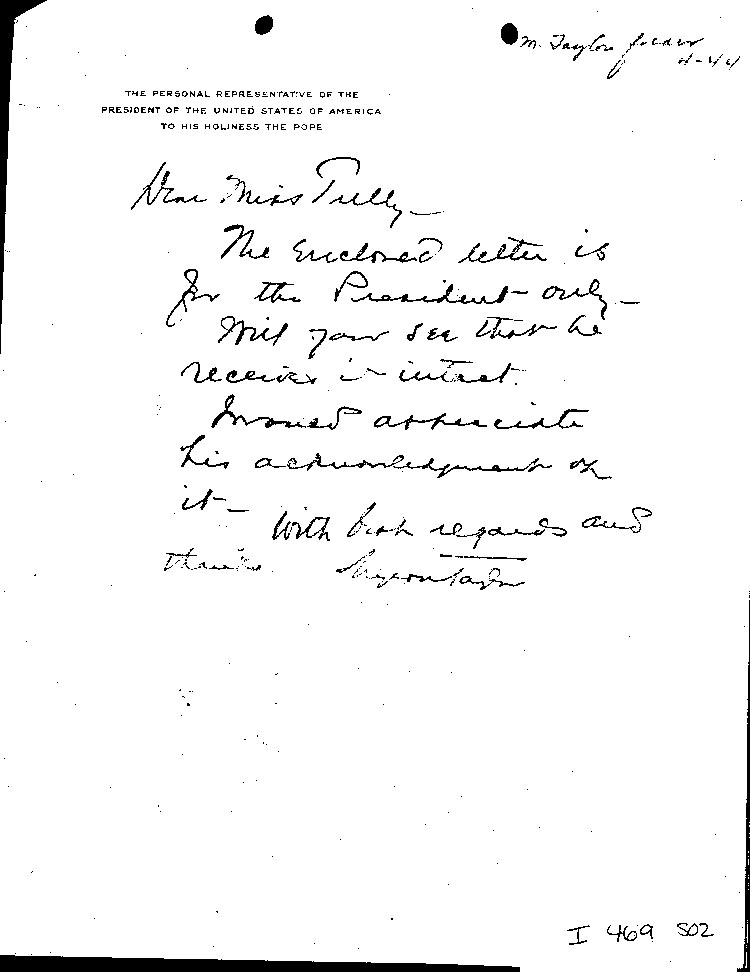 M. Taylor folder
4-44
THE PERSONAL REPRESENTATIVE OF THE
PRESIDENT OF THE UNITED STATES OF AMERICA
TO HIS HOLINESS THE POPE
Dear Miss Tully—
The enclosed letter is
for the President only—
Will you see that he
receives it intact.
I would appreciate
his acknowledgment of
it— With best regards and
thanks Myron Taylor
I 469 S02